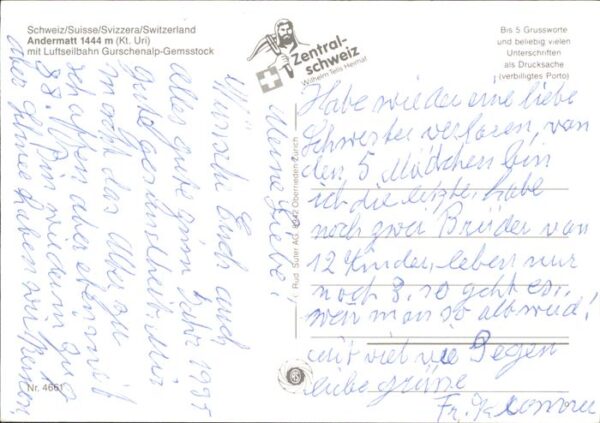 Schweiz/Suisse/Svizzera/Switzerland
Andermatt 1444 m (Kt. Uri)
mit Luftseilbahn Gurschenalp-Gemsstock
Zentral-
schweiz
Wilhelm Tells Heimat
Bis 5 Grussworte
und beliebig vielen
Unterschriften
als Drucksache
(verbilligtes Porto)
Meine Liebe!
Wünsche Euch auch
alles gute zum Jahr 1985
gute gesundheit. Mir
macht das Alter zu
schaffen aber
88. Bin wiederum
aber haben wir
Habe wieder eine liebe
Schwester verloren, von
den 5 Mädchen bin
ich die letzte, habe
noch zwei Brüder von
12 Kinder, leben nur
noch 3. so geht es,
wen man so alt wird!
mit viel Segen
liebe grüsse
Fr.
Rud. Suter AG 8942 Oberrieden-Zürich
Nr. 4661